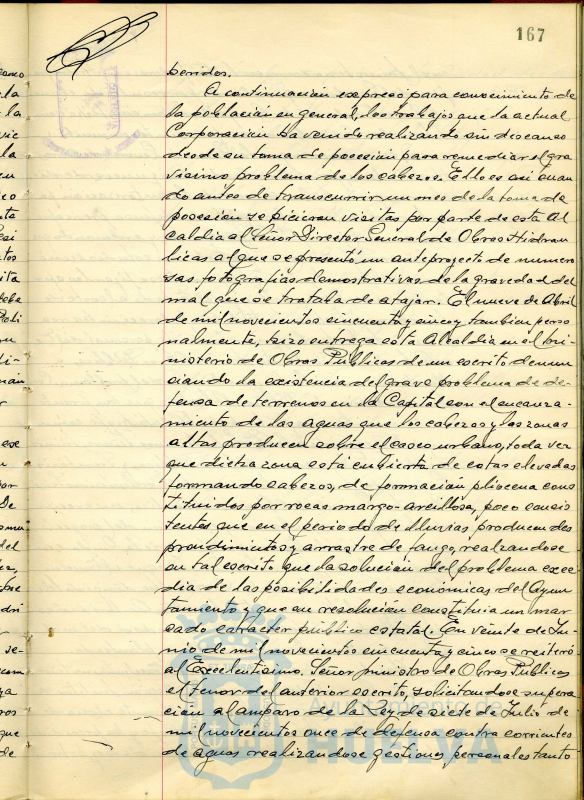 167
beridos.
A continuación expreso para conocimiento de
la población en general, los trabajos que la actual
Corporación ha venido realizando sin descanso
desde su toma de posesión para remediar el gra
vísimo problema de los cabezos. Ello es así cuan
do antes de transcurrir un mes de la toma de
posesión se hicieron visitas por parte de esta Al
caldia al Señor Director General de Obras Hidrau
licas al que se presentó un anteproyecto de numero
sas fotografias demostrativas de la gravedad del
mal que se trataba de atajar. El nueve de Abril
de mil novecientos cincuenta y cinco y tambien perso
nalmente, hizo entrega esta Alcaldia en el Mi-
nisterio de Obras Públicas de un escrito denun
ciando la existencia del grave problema de de-
fensa de terrenos en la Capital con el encauza-
miento de las aguas que los cabezos y las zonas
altas producen sobre el casco urbano, toda vez
que dicha zona está cubierta de cotas elevadas
formando cabezos, de formación pliocena cons
tituidos por rocas margo-arcillosa, poco consis
tentes que en el periodo de lluvias producen des
prendimientos y arrastre de fango, realzandose
en tal escrito que la solución del problema exce
dia de las posibilidades económicas del Ayun
tamiento y que su resolución constituia un mar
cado carácter público estatal. En veinte de Ju
nio de mil novecientos cincuenta y cinco se reiteró
al Excelentísimo. Señor Ministro de Obras Públicas
el tenor del anterior escrito, solicitandose su
cion al amparo de la Ley de siete de Julio de
mil novecientos once de defensa contra corrientes
de aguas realizandose gestiones personales tanto
Ayuntamiento de
HUELVA